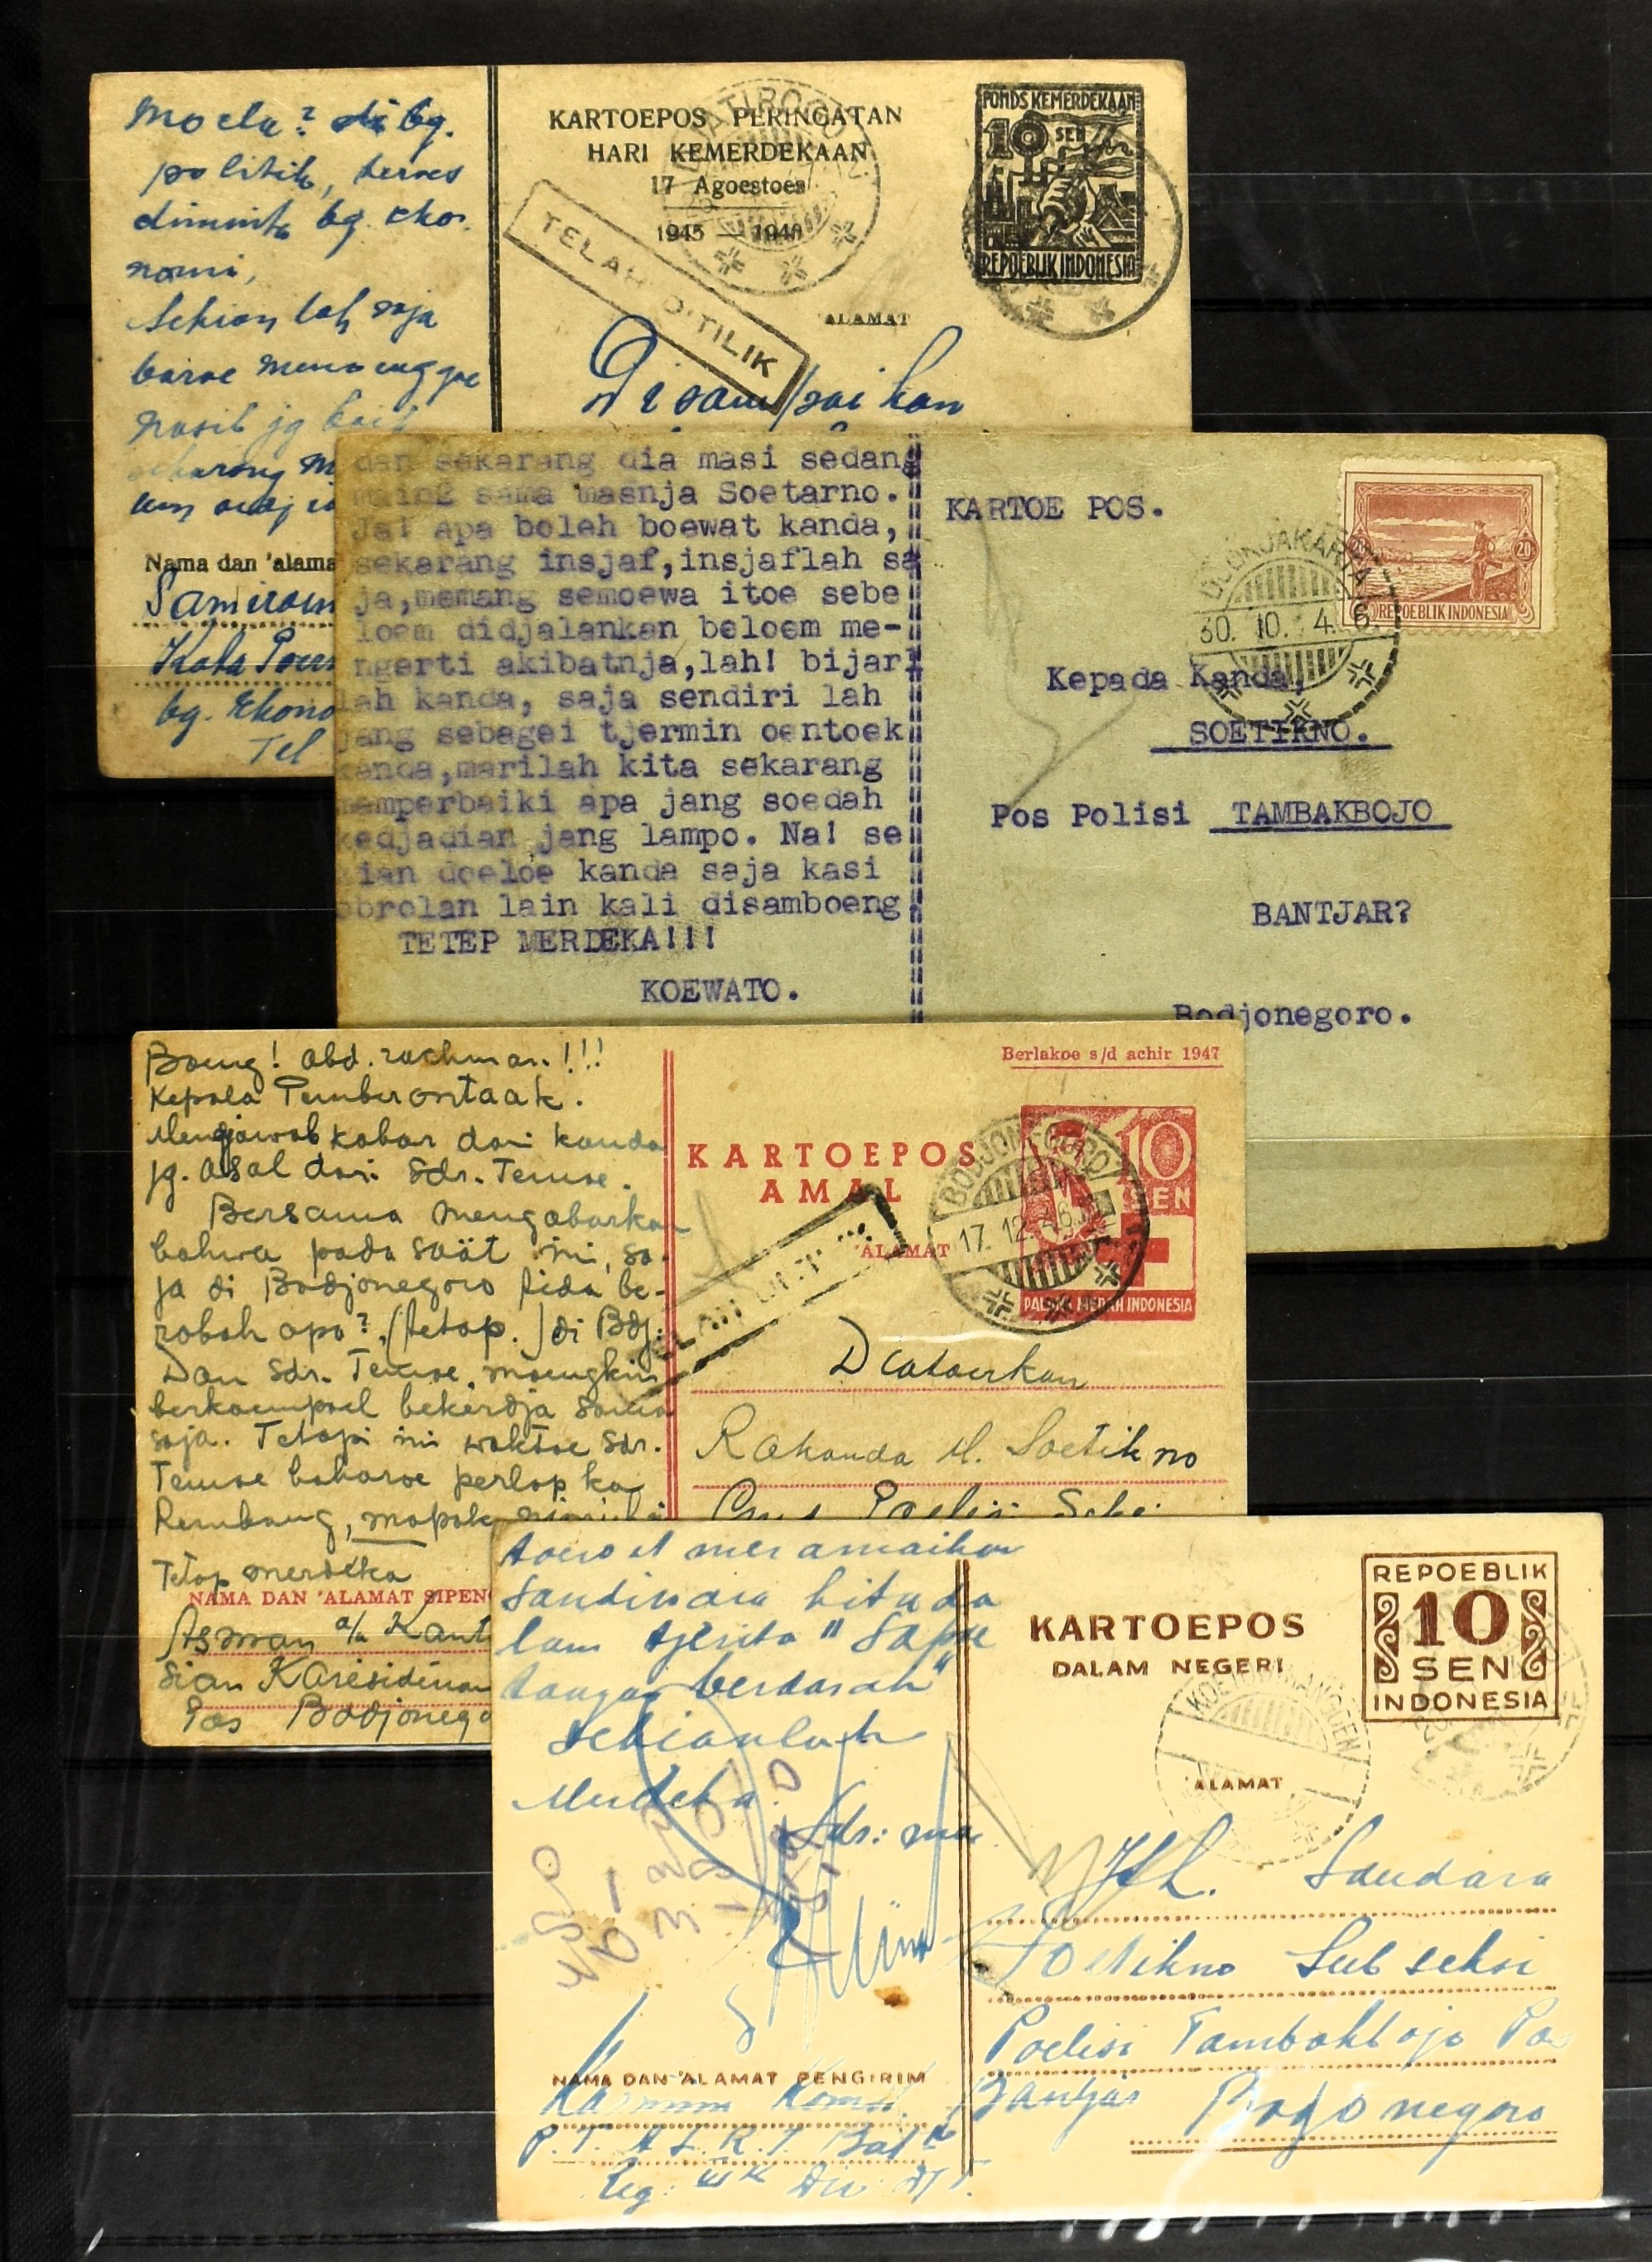 Moela? di bg.
politik, teroes
diminta bg. eko-
nomi,
Sekian lah saja
baroe menoenggoe
nasib jg baik
sekarang
Nama dan 'alama
Samiroen
Kota
bg. Ekono
Tel
KARTOEPOS PERINGATAN
HARI KEMERDEKAAN
17 Agoestoes
1945 — 1946
TELAH DITILIK
'ALAMAT
PONDS KEMERDEKAAN
10 SEN
REPOEBLIK INDONESIA
Disampaikan
dan sekarang dia masi sedang
main2 sama masnja Soetarno.
Ja! apa boleh boewat kanda,
sekarang insjaf,insjaflah sa
ja,memang semoewa itoe sebe
loem didjalankan beloem me-
ngerti akibatnja,lah! bijarl
lah kanda, saja sendiri lah
jang sebagei tjermin oentoek
kanda,marilah kita sekarang
memperbaiki apa jang soedah
kedjadian jang lampo. Na! se
kian doeloe kanda saja kasi
obrolan lain kali disamboeng
TETEP MERDEKA!!!
KOEWATO.
KARTOE POS.
20
REPOEBLIK INDONESIA
DJOKJAKARTA
30. 10. 4.6.
Kepada Kanda.
SOETIRNO.
Pos Polisi TAMBAKBOJO
BANTJAR?
Bodjonegoro.
Boeng! abd. rachman!!!
Kepala Pemberontaak.
Mendjawab kabar dari kanda
jg. asal dari Sdr. Temoe.
Bersama mengabarkan
bahwa pada saät ini, sa-
ja di Bodjonegoro tida be-
robah apa?, (tetap.) di Bdj.
Dan Sdr. Temoe, moengkin
berkoempoel bekerdja sama
saja. Tetapi ini waktoe Sdr.
Temoe baharoe perlop ka
Rembang, mapak
Tetap merdeka
NAMA DAN 'ALAMAT SIPEN
Asman a/a Kant
sian Karesidenan
Pos Bodjonego
Berlakoe s/d achir 1947
KARTOEPOS
AMAL
'ALAMAT
10
SEN
PALANG MERAH INDONESIA
BODJONEGORO
17. 12. 46
Diatoerkan
Rakanda M. Soetikno
toeroet meramaikan
sandiwara kita da
lam tjerita " Sapoe
tangan berdarah"
Sekianlah
Merdeka.
NAMA DAN 'ALAMAT PENGIRIM
KARTOEPOS
DALAM NEGERI
REPOEBLIK
10
SEN
INDONESIA
'ALAMAT
Jth. Saudara
Soetikno Sub seksi
Poelisi Tambakbojo Pos
Bantjar Bodjonegoro